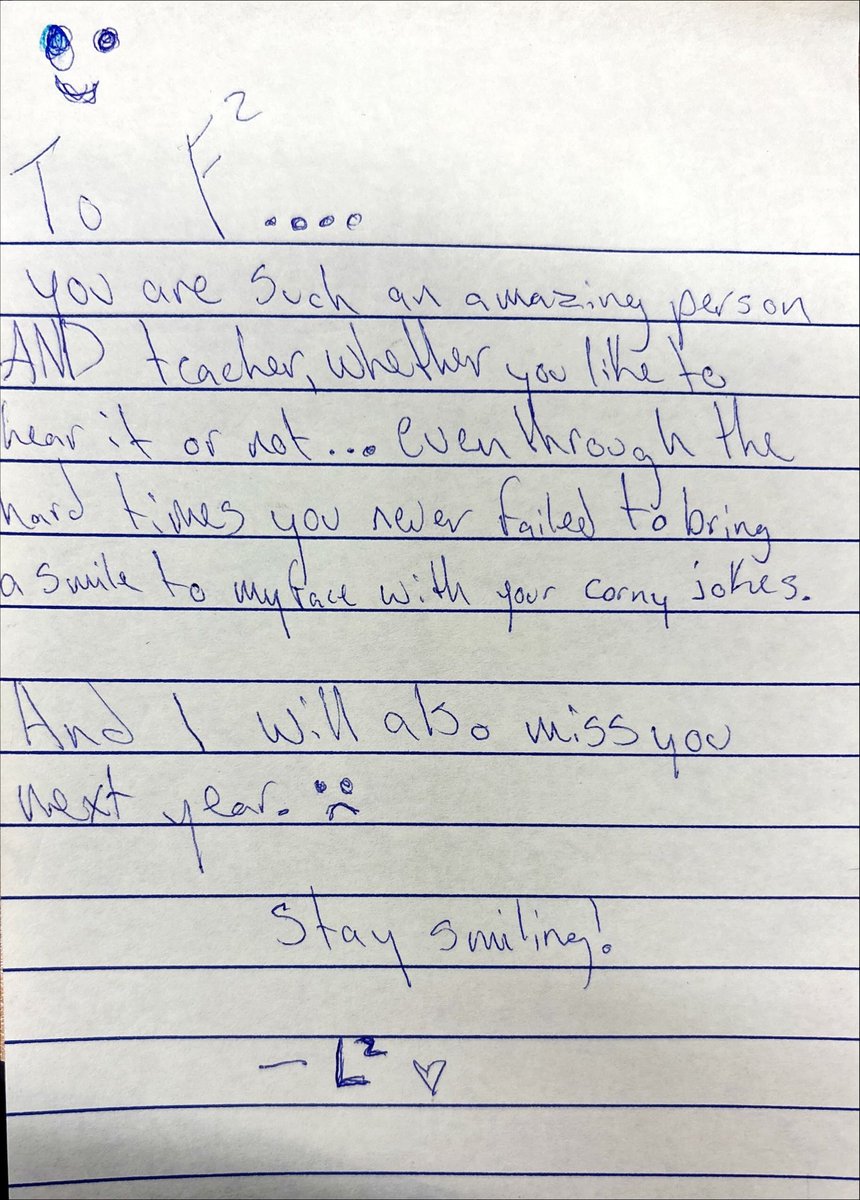 To F²....
you are such an amazing person
AND teacher, whether you like to
hear it or not... even through the
hard times you never failed to bring
a smile to my face with your corny jokes.
And I will also miss you
next year. :(
Stay smiling!
— L² ♡